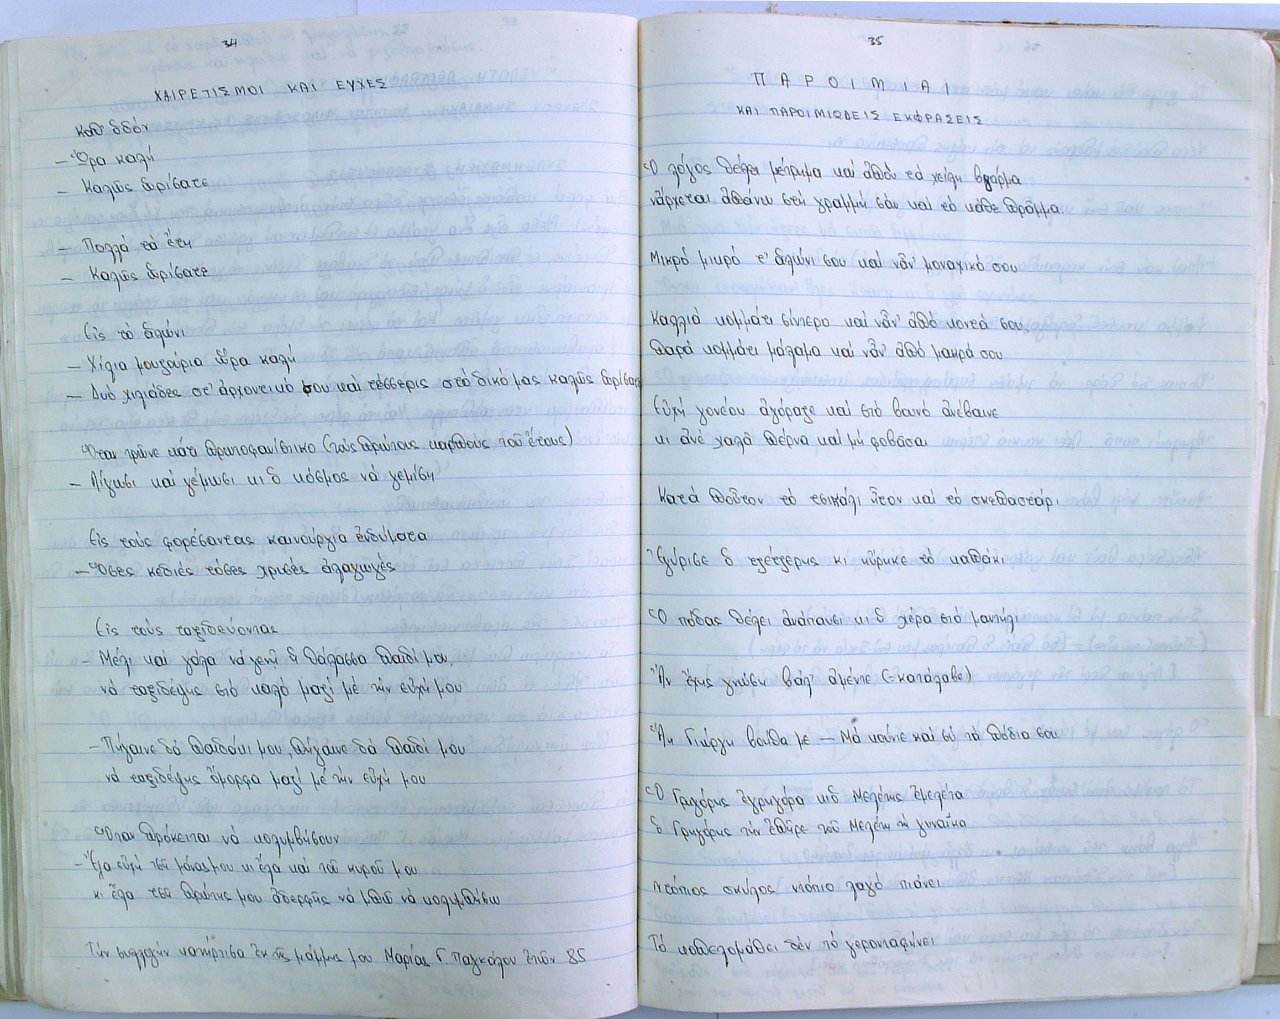 34
ΧΑΙΡΕΤΙΣΜΟΙ ΚΑΙ ΕΥΧΕΣ
Καθ' ὁδόν
– Ὥρα καλή
– Καλῶς ὡρίσατε
– Πολλά τά ἔτη
– Καλῶς ὡρίσατε
Εἰς τό ἁλώνι
– Χίλια μουζούρια ὥρα καλή
– Δυό χιλιάδες στ' ἀρχοντικό σου καί τέσσερις στό δικό μας καλῶς ὡρίσατε
Ὅταν τρῶνε κάτι πρωτοφανίσιμο (τούς πρώτους καρπούς τοῦ ἔτους)
– καί γέμωσι κι ὁ κόσμος νά γεμίση
Εἰς τούς φορέσαντας καινούργια ἐνδύματα
– Ὅσες κεδιές τόσες χρυσές ἀλαγωγές
Εἰς τούς ταξιδεύοντας
– Μέλι καί γάλα νά γενῆ ἡ θάλασσα παιδί μου,
νά ταξιδέψης στό καλό μαζί μέ τήν εὐχή μου
– Πήγαινε δά παιδάκι μου, πήγαινε δά παιδί μου
νά ταξιδέψης ὄμορφα μαζί μέ τήν εὐχή μου
Ὅταν πρόκειται νά κολυμβήσουν
– Ἔλα εὐχή τσῆ μάνας μου κι ἔλα καί τοῦ κυροῦ μου
κι ἔλα τσῆ πρώτης μου ἀδερφῆς νά μπῶ νά κολυμπήσω
Τήν συλλογήν κατήρτισα ἐκ τῆς μάμμης μου Μαρίας Γ. Παγκάλου ἐτῶν 85
35
ΠΑΡΟΙΜΙΑΙ
ΚΑΙ ΠΑΡΟΙΜΙΩΔΕΙΣ ΕΚΦΡΑΣΕΙΣ
Ὁ λόγος θέλει μέτρημα καί ἀπού τά χείλη βγάρμα
νἄρχεται ἀπάνω στή γραμμή σάν καί τό κάθε πρᾶμμα
Μικρό μικρό τ' ἁλώνι σου καί νἆν' μοναχικό σου
Καλλιά κομμάτι σίντερο καί νἆν' ἀπό κοντά σου
παρά κομμάτι μάλαμα καί νἆν' ἀπό μακρά σου
Εὐχή γονέου ἀγόραζε καί στό βουνό ἀνέβαινε
κι ἀνέ χαλᾶ πέρνα καί μή φοβᾶσαι
Κατά ποὖτον τό τσικάλι ἦτον καί τό σκεπαστάρι
Ἐγύρισε ὁ τζέτζερης κι ηὕρηκε τό καπάκι
Ὁ πόδας θέλει ἀνάπαψι κι ἡ χέρα στό μαντήλι
Ἄν ἔχης γνῶση βάλ' ἀμέντε (=κατάλαβε)
Ἅη Γιώργη βούθα με – Μά κούνιε καί σύ τά πόδια σου
Ὁ Γρηγόρης ἐγρηγόρα κι ὁ Μελέτης ἐμελέτα
ὁ Γρηγόρης τήν ἐπῆρε τοῦ Μελέτη τή γυναῖκα
Ντόπιος σκύλος ντόπιο λαγό πιάνει
Τό κοπελομάθει δέν τό γερονταφήνει